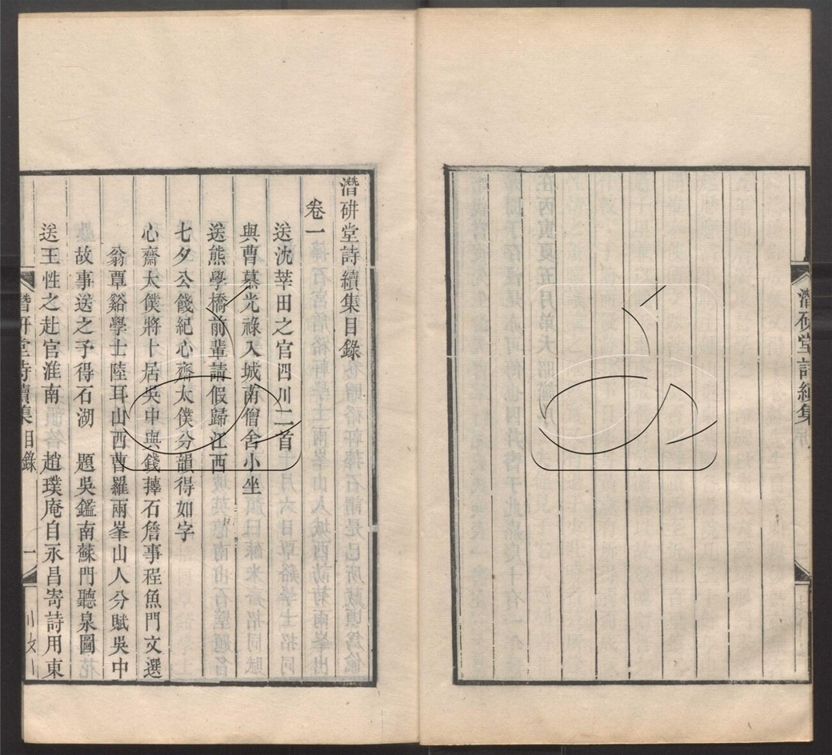 潛研堂詩續集
潛硏堂詩續集目錄
卷一
送沈莘田之官四川二首
與曹慕光祿入城南僧舍小坐
送熊學橋前輩請假歸江西
七夕公餞紀心齋太僕分韻得如字
心齋太僕將卜居吳中與錢擇石詹事程魚門文選
翁覃谿學士陸耳山西曹羅兩峯山人分賦吳中
故事送之予得石湖　題吳鑑南蘇門聽泉圖
送王性之赴官淮南　趙璞庵自永昌寄詩用東
潛研堂詩續集目錄
一